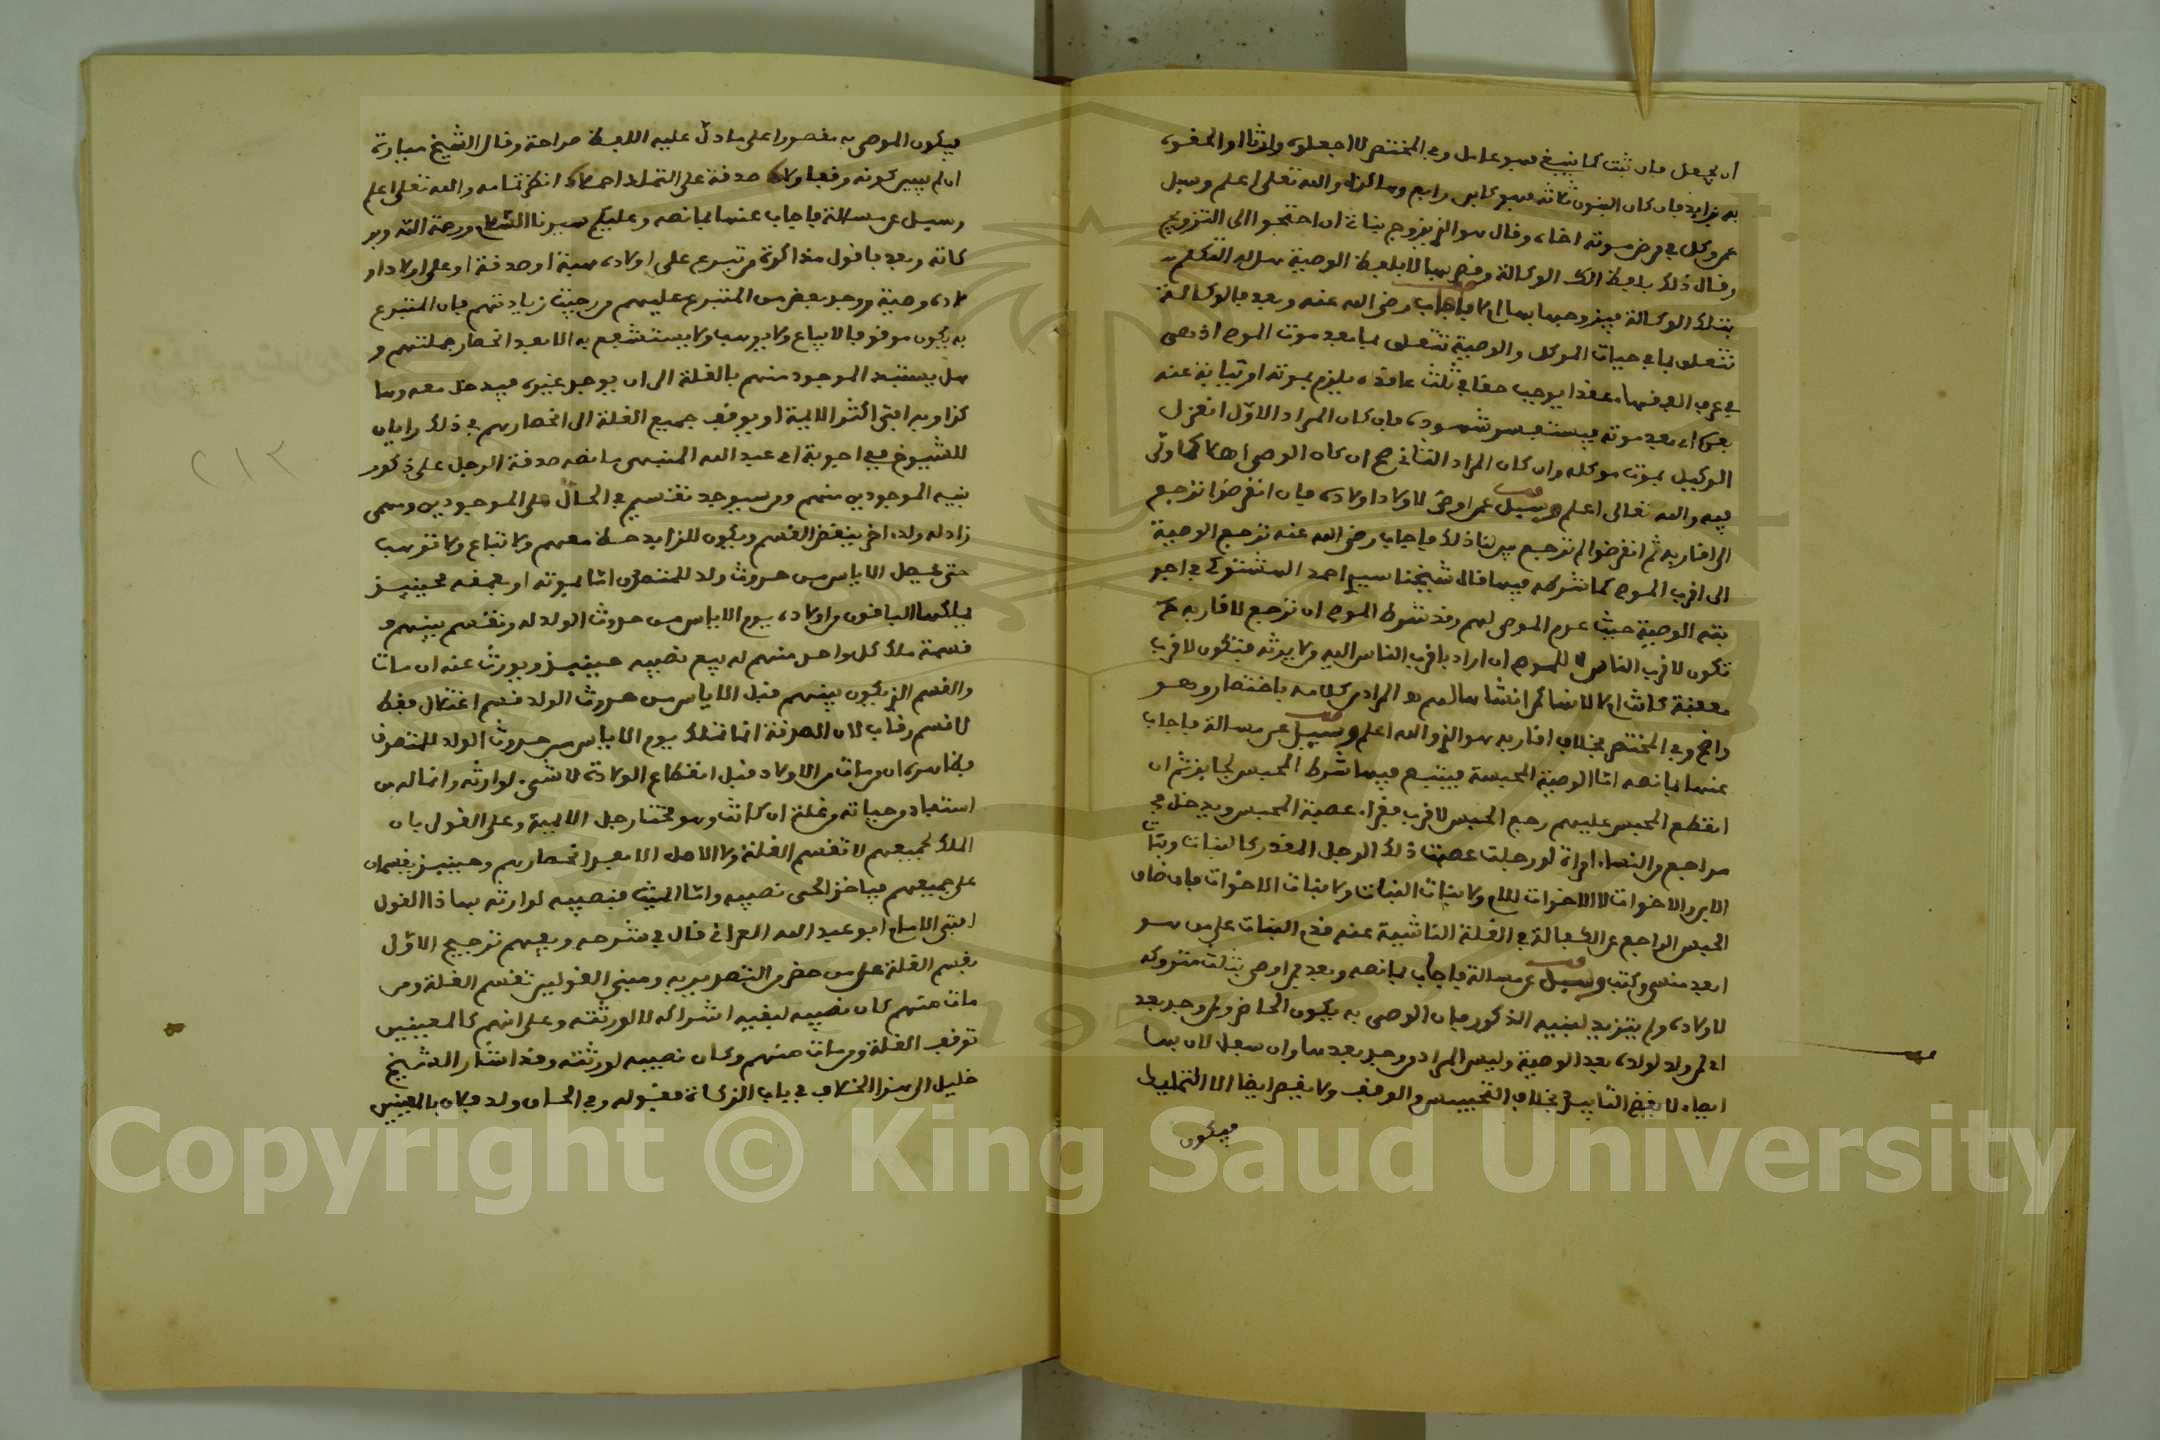 أن يجعل فإن ثبت كما ينبغي فهو عامل وفي المختصر لا اجعلوه وارثا او الحقوه
به بزايد فإن كان البنون ثلاثة فهو كابن رابع وهاكذا والله تعلى اعلم وسيل
عمن وكل في مرض موته اخاه وقال هو الذي يزوج بناتي ان احتجوا الى التزويج
وقال ذلك بلفظ الوكالة وفهم بها لا بلفظ الوصية هل له التكلم
بتلك الوكالة فيزوجها بها ام لا فاجاب رضي الله عنه وبعد فالوكالة
تتعلق بما في حيات الموكل والوصية تتعلق بما بعد موت الموصي اذ هي
في عرف الفقهاء عقد يوجب حقا في ثلث عاقده يلزم بموته او نيابة عنه
بعده اي بعد موته فيستفسر شهوده فإن كان المراد الاول انعزل
الوكيل بموت موكله وان كان المراد الثاني صح ان كان الوصي اهلا لما ولي
فيه والله تعالى اعلم وسيل عمن اوصى لاولاد اولاده فإن انقرضوا ترجع
الى اقاربه ثم انقرضوا لم ترجع بين لنا ذلك فاجاب رضي الله عنه ترجع الوصية
الى اقرب الموصي كما شرطه فيها قال شيخنا سيدي احمد في اجو
بته الوصية حيث عدم الموصى لهم وقد شرط الموصي ان ترجع لاقاربه
تكون لاقرب الناس للموصي ان اراد باقرب الناس اليه ولا يرثه فتكون لاقرب
معقبة كانت ام لا المراد من كلامه باختصار وهو
واضح وفي المختصر بخلاف اقاربه هو الذي والله اعلم وسيل عن مسالة فاجاب
عنها بما نصه اما الوصية المحبسة فيتبع فيها شرط المحبس الجايز ثم ان
انقطع المحبس عليهم رجع الحبس لاقرب فقراء عصبة المحبس ويدخل في
مراجع والنساء امراة لو رجلت عصبت ذلك الرجل المقدر كالبنات وبنات
الابن والاخوات لا الاخوات للام ولا بنات البنات ولا بنات الاخوات فإن ضاق
الحبس الراجع عن الكفالة في الغلة الناشية عنه قدم البنات على من هو
ابعد منهن وكتب وسيل عن مسالة فاجاب بما نصه وبعد فمن اوصى بثلث متروكه
لاولاده ولم يتزيد لبنيه الذكور فإن الوصى به يكون الحاضر ومن وجد بعد
اي لمن ولد لولده بعد الوصية وليس المراد من وجد بعدها وان سفل لان بها
ايصاء لا يقتضي التابيد بخلاف التحبيس والوقف ولا يقتضي ايضا الا التمليك
فيكون
فيكون الموصى به مقصورا على ما دل عليه اللفظ صراحة وقال الشيخ ميارة
ان لم يبين كونه وقفا ولا صدقة على التملك احملا انظر تمامه والله تعلى اعلم
وسيل عن مسالة فاجاب عنها بما نصه وعليكم سيدنا السلام ورحمة الله وبر
كاته وبعد فاقول مذاكرة من تبرع على اولاده هبة او صدقة او على اولاد او
لاده وصية ووجد بعض من المتبرع عليهم ورجيت زيادتهم فإن المتبرع
به يكون موقوفا لا يباع ولا يوهب ولا يستشفع به الا بعد انحصار جملتهم و
هل يستبد الموجود منهم بالغلة الى ان يوجد غيره فيدخل معه وها
كذا وبه افتى اكثر الايمة او يوقف جميع الغلة الى انحصارهم في ذلك رايان
للشيوخ ففي اجوبة ابي عبد الله المنيهي ما نصه صدقة الرجل على ذكور
بنيه الموجودين منهم ومن سيوجد تقتسم في الحال على الموجودين ومهمى
زاد له ولد اخر ينقض القسم ويكون للزايد حظه معهم ولا تباع ولا توهب
حتى يحصل الاياس من حدوث ولد للمتصدق اما بموته او فحينيذ
يملكها الباقون من اولاده يوم الاياس من حدوث الولد له وتقسم بينهم
قسمة ملك كل واحد منهم له بيع نصيبه حينيذ ويورث عنه ان مات
والقسم الذي يكون بينهم قبل الاياس من حدوث الولد قسم اغتلال فقط
لا قسم رقاب لان الصدقة انما تملك يوم الاياس من حدوث الولد للمتصدق
ان من مات من الاولاد قبل انقطاع الولادة لا شيء لوارثه وانما له من
استفاد من حياته من غلة ان كانت وهو مختار جل الايمة وعلى القول بان
الملك لجميعهم لا تقسم الغلة ولا الاصل الا بعد انحصارهم وحينيذ يقسمان
على جميعهم فياخذ الحي نصيبه واما الميت فنصيبه لوارثه بهاذا القول
افتى الامام ابو عبد الله قال في شرحه وبعضهم ترجيح الاول
بقسم الغلة على من حضر من المتصدق به ومبنى القولين تقسم الغلة ومن
مات منهم كان نصيبه لبقية اشراكه لا لورثته وعلى انهم كالمعينين
توقف الغلة ومن مات منهم وكان نصيبه لورثته وقد اشار الشيخ
خليل الى هذا الخلاف في باب الزكاة بقوله وفي الحاق ولد فلان بالمعينين